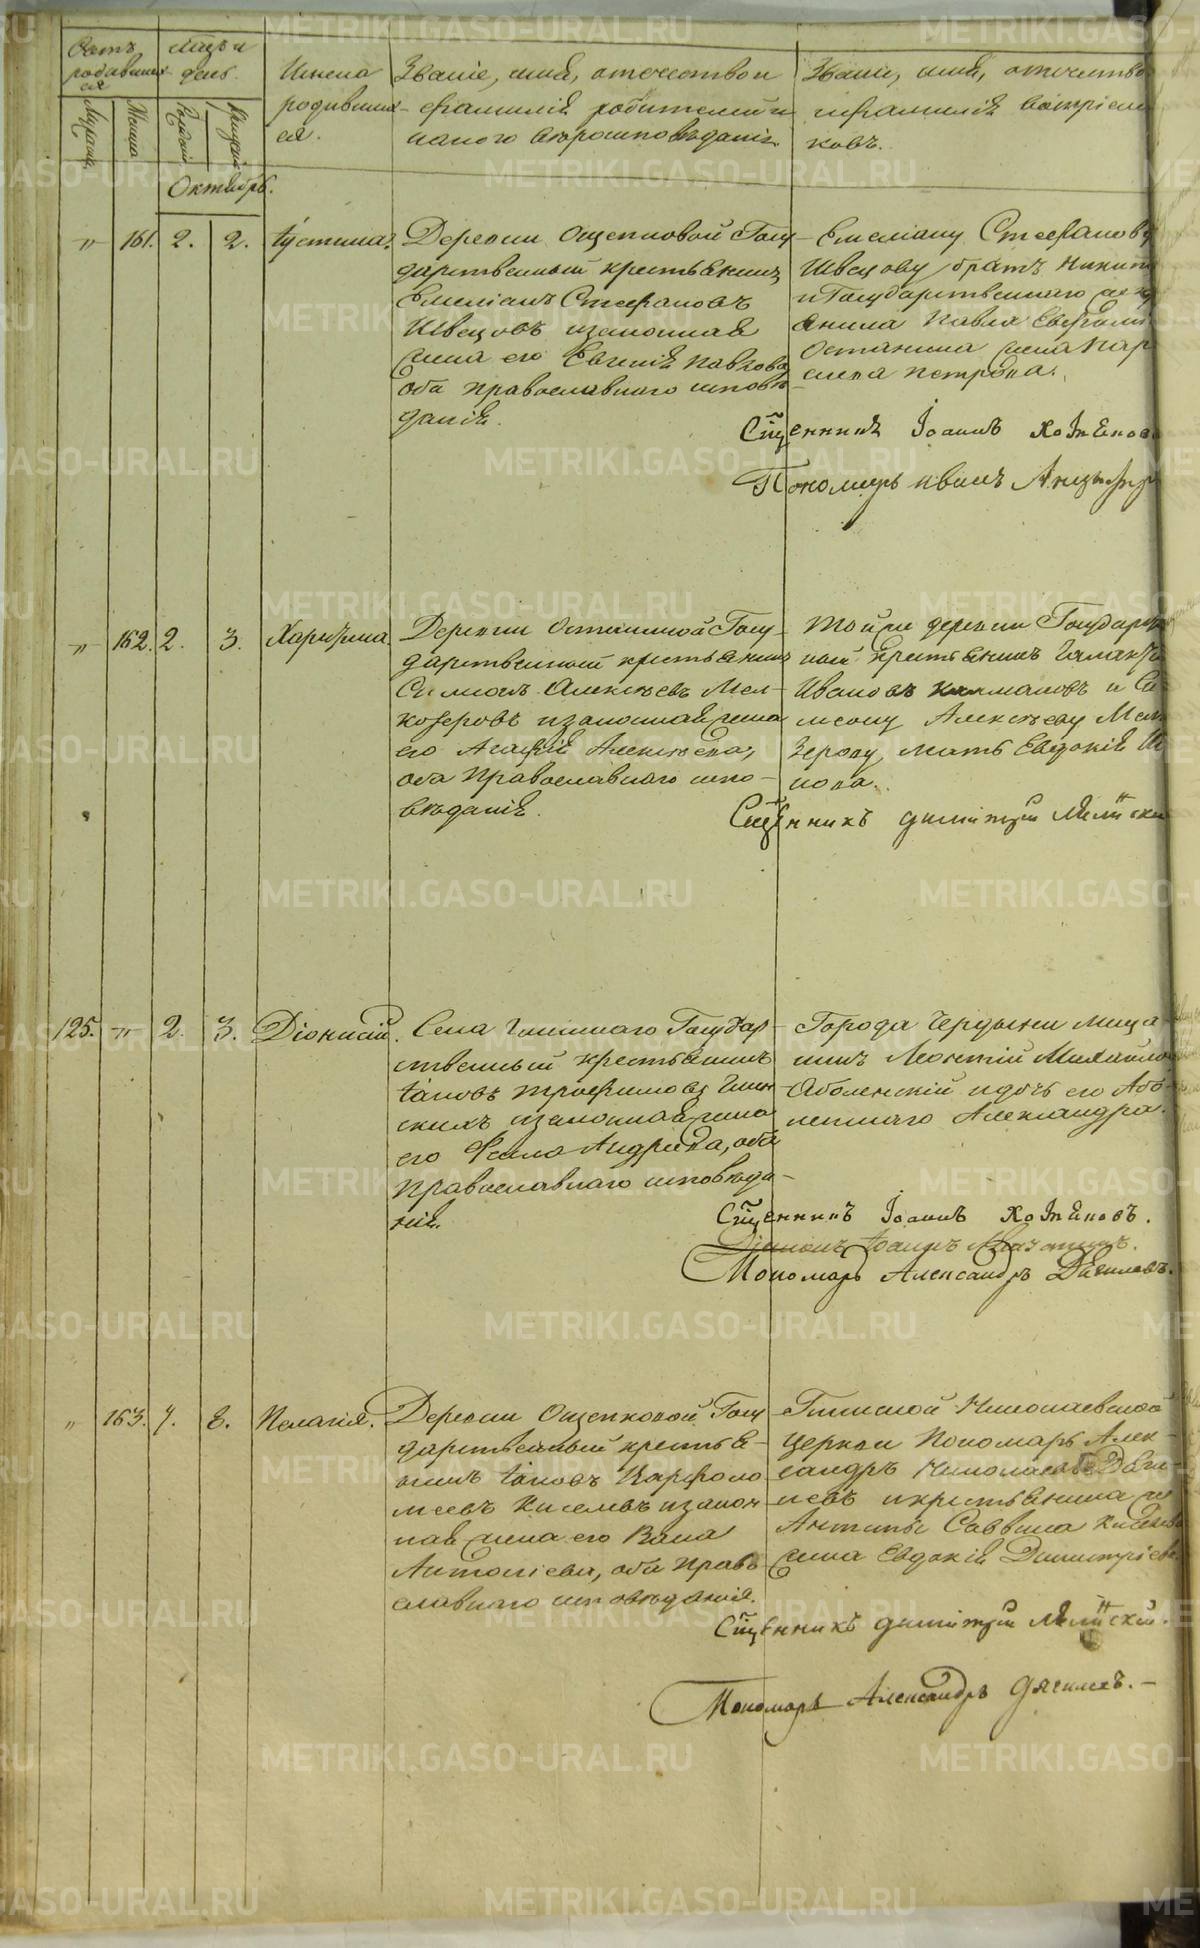 Счетъ родившихся
Мѣсяцъ и день
Имена родившихся.
Званіе, имя, отечество и
фамилія родителей и
какого вѣроисповѣданія.
Званіе, имя, отечество
и фамилія воспріем
ковъ.
Мужска
Женска
Рожденія
Крещенія
Октябрь.
„ 161. 2. 2. Іустина.
Деревни Ощепковой Госу-
дарственный крестьянинъ
Емеліанъ Стефановъ
Швецовъ и законная
жена его Евгенія Павлова
оба православнаго исповѣ-
данія.
Емеліану Стефанову
Швецову братъ Никита
и Государственнаго
янина Павла
Останина жена Пар
Петрова.
Сщ҃енникъ Іоаннъ Хотѣновъ
Пономарь Иванъ
„ 162. 2. 3. Харитина
Деревни Останиной Госу-
дарственный крестьянинъ
Симеонъ Алексѣевъ Мел-
козеровъ и законная жена
его Агафія Алексѣева,
оба Православнаго испо-
вѣданія.
Той же деревни Государст
ный крестьянинъ Галактіо
Ивановъ и Си
меону Алексѣеву Мелк
зерову, мать Евдокія
нова.
Сщ҃енникъ Димитрій
125. „ 2. 3. Діонисій.
Села Государ-
ственный крестьянинъ
Іаковъ Трофимовъ
скихъ и законная жена
его Ѳекла Андреева, оба
Православнаго исповѣда-
нія.
Города Чердыни мѣща-
нинъ Леонтій Михайло
Оболенскій и дочь его Обо-
ленскаго Александра.
Сщ҃енникъ Іоаннъ Хотѣновъ.
Діаконъ Іоаннъ
Пономарь Александръ Дягилевъ.
„ 163. 7. 8. Пелагія.
Деревни Ощепковой Госу
дарственный крестья-
нинъ Іаковъ Варфоло
меевъ Киселевъ и закон
ная жена его
Антоніева, оба Право
славнаго исповѣданія.
Николаевской
церкви Пономарь Алек-
сандръ Николаевъ Дяги-
левъ и крестьянина
Антипы Саввина Киселева
жена Евдокія Димитріева
Сщ҃енникъ Димитрій
Пономарь Александръ Дягилевъ.
METRIKI.GASO-URAL.RU